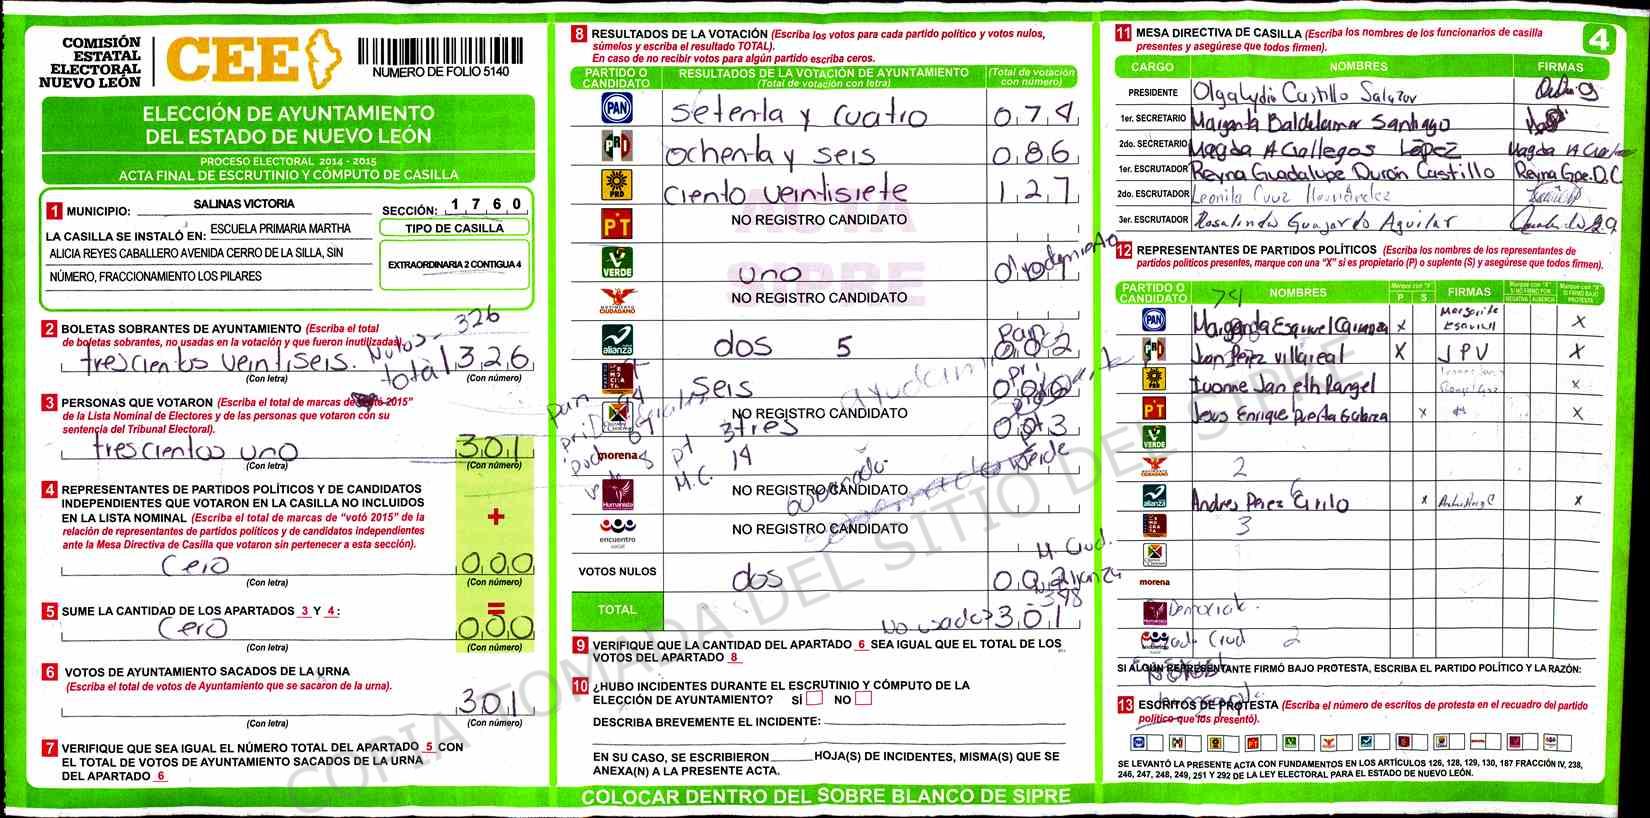 COMISIÓN
ESTATAL
ELECTORAL
NUEVO LEÓN
CEE
NUMERO DE FOLIO 5140
ELECCIÓN DE AYUNTAMIENTO
DEL ESTADO DE NUEVO LEÓN
PROCESO ELECTORAL 2014 - 2015
ACTA FINAL DE ESCRUTINIO Y CÓMPUTO DE CASILLA
1 MUNICIPIO: SALINAS VICTORIA SECCIÓN: 1 7 6 0
LA CASILLA SE INSTALÓ EN: ESCUELA PRIMARIA MARTHA
ALICIA REYES CABALLERO AVENIDA CERRO DE LA SILLA, SIN
NÚMERO, FRACCIONAMIENTO LOS PILARES
TIPO DE CASILLA
EXTRAORDINARIA 2 CONTIGUA 4
2 BOLETAS SOBRANTES DE AYUNTAMIENTO (Escriba el total
de boletas sobrantes, no usadas en la votación y que fueron inutilizadas).
Nulos - 326
total
trescientos veintiseis. 3 2 6
(Con letra) (Con número)
3 PERSONAS QUE VOTARON (Escriba el total de marcas de "votó 2015"
de la Lista Nominal de Electores y de las personas que votaron con su
sentencia del Tribunal Electoral).
trescientos uno 3 0 1
(Con letra) (Con número)
4 REPRESENTANTES DE PARTIDOS POLÍTICOS Y DE CANDIDATOS
INDEPENDIENTES QUE VOTARON EN LA CASILLA NO INCLUIDOS
EN LA LISTA NOMINAL (Escriba el total de marcas de "votó 2015" de la
relación de representantes de partidos políticos y de candidatos independientes
ante la Mesa Directiva de Casilla que votaron sin pertenecer a esta sección).
+
Cero 0 0 0
(Con letra) (Con número)
=
5 SUME LA CANTIDAD DE LOS APARTADOS 3 Y 4:
Cero 0 0 0
(Con letra) (Con número)
6 VOTOS DE AYUNTAMIENTO SACADOS DE LA URNA
(Escriba el total de votos de Ayuntamiento que se sacaron de la urna).
3 0 1
(Con letra) (Con número)
7 VERIFIQUE QUE SEA IGUAL EL NÚMERO TOTAL DEL APARTADO 5 CON
EL TOTAL DE VOTOS DE AYUNTAMIENTO SACADOS DE LA URNA
DEL APARTADO 6
8 RESULTADOS DE LA VOTACIÓN (Escriba los votos para cada partido político y votos nulos,
súmelos y escriba el resultado TOTAL).
En caso de no recibir votos para algún partido escriba ceros.
PARTIDO O CANDIDATO
RESULTADOS DE LA VOTACIÓN DE AYUNTAMIENTO
(Total de votación con letra)
(Total de votación con número)
PAN setenta y cuatro 0 7 4
PRI ochenta y seis 0 8 6
PRD ciento veintisiete 1 2 7
PT NO REGISTRO CANDIDATO
VERDE uno
MOVIMIENTO CIUDADANO NO REGISTRO CANDIDATO
alianza dos 5 0 0 2
pan
DEMÓCRATA seis 0 0 6
pri
NO REGISTRO CANDIDATO
morena tres 0 0 3
pt
M.C. 14
verde
Humanista NO REGISTRO CANDIDATO
encuentro social NO REGISTRO CANDIDATO
M. Ciud.
VOTOS NULOS dos 0 0 2
TOTAL No usadas 3 0 1
ACTA
SIPRE
9 VERIFIQUE QUE LA CANTIDAD DEL APARTADO 6 SEA IGUAL QUE EL TOTAL DE LOS
VOTOS DEL APARTADO 8
10 ¿HUBO INCIDENTES DURANTE EL ESCRUTINIO Y CÓMPUTO DE LA
ELECCIÓN DE AYUNTAMIENTO? SÍ NO
DESCRIBA BREVEMENTE EL INCIDENTE:
EN SU CASO, SE ESCRIBIERON HOJA(S) DE INCIDENTES, MISMA(S) QUE SE
ANEXA(N) A LA PRESENTE ACTA.
COLOCAR DENTRO DEL SOBRE BLANCO DE SIPRE
11 MESA DIRECTIVA DE CASILLA (Escriba los nombres de los funcionarios de casilla
presentes y asegúrese que todos firmen).
4
CARGO NOMBRES FIRMAS
PRESIDENTE Olga Lydia Castillo Salazar
1er. SECRETARIO Margarita Baldelamar Santiago
2do. SECRETARIO Magda A Gallegos López Magda A
1er. ESCRUTADOR Reyna Guadalupe Durán Castillo Reyna Gpe. D.C
2do. ESCRUTADOR Leonila Cruz Hernández
3er. ESCRUTADOR Rosalinda Guajardo Aguilar
12 REPRESENTANTES DE PARTIDOS POLÍTICOS (Escriba los nombres de los representantes de
partidos políticos presentes, marque con una "X" si es propietario (P) o suplente (S) y asegúrese que todos firmen).
PARTIDO O CANDIDATO 74 NOMBRES P S FIRMAS
PAN Margarita Esquivel Carranza X Margarita Esquivel X
PRI Juan Pérez Villareal X J P V X
PRD Ivonne Janeth Rangel X
PT Jesus Enrique Puerta X X
VERDE
MOVIMIENTO CIUDADANO 2
alianza Andres Perez Cirilo X X
DEMÓCRATA 3
morena
Humanista
2
SI ALGÚN REPRESENTANTE FIRMÓ BAJO PROTESTA, ESCRIBA EL PARTIDO POLÍTICO Y LA RAZÓN:
13 ESCRITOS DE PROTESTA (Escriba el número de escritos de protesta en el recuadro del partido
político que los presentó).
SE LEVANTÓ LA PRESENTE ACTA CON FUNDAMENTOS EN LOS ARTÍCULOS 126, 128, 129, 130, 187 FRACCIÓN IV, 238,
246, 247, 248, 249, 251 Y 292 DE LA LEY ELECTORAL PARA EL ESTADO DE NUEVO LEÓN.
COPIA TOMADA DEL SITIO DEL SIPRE